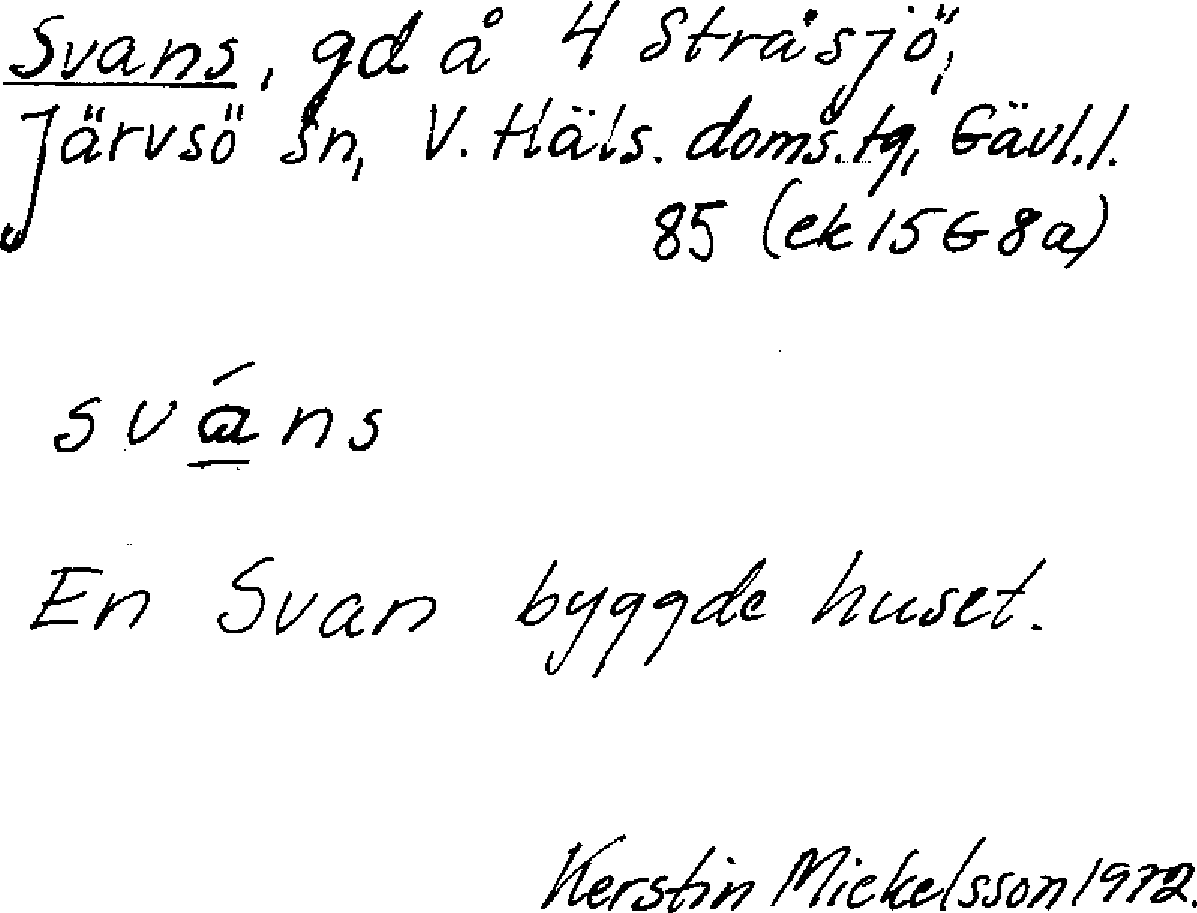 Svans, gd å 4 Stråsjö,
Järvsö sn, V. Häls. doms.tg, Gävl.l.
85 (ek 15 G 8 a)
svá̲ns
En Svan byggde huset.
Kerstin Mickelsson 1972.